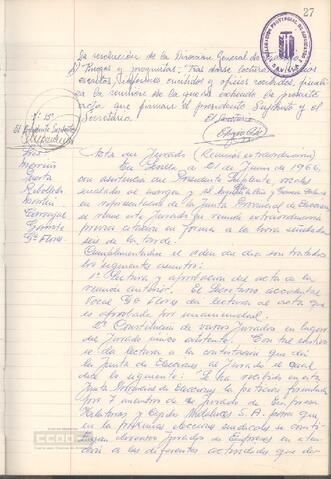 27
la resolución de la Dirección General de
y Ruegos y preguntas. Tras darse lectura
escritos, informes emitidos y oficios recibidos, finali-
za la reunión de la que se extiende la presente
acta que firman el presidente Suplente y el
Secretario.
El Secretario
Vº Bº
El Presidente Suplente
Acta del Jurado (Reunión extraordinaria)
En Sevilla, a 21 de Junio de 1966,
con asistencia del Presidente Suplente, vocales
señalados al margen y
en representación de la Junta Provincial de Elecciones
se reúne este Jurado en reunión extraordinaria
previa citación en forma a la hora señalada
seis de la tarde.
Cumplimentando el orden del día son tratados
los siguientes asuntos:
1º Lectura y aprobación del acta de la
reunión anterior. El Secretario accidental
Vocal Gª Flores da lectura al acta que
es aprobada por unanimidad.
2º Constitución de varios Jurados en lugar
del Jurado único existente. Con tal motivo
se da lectura a la contestación que da
la Junta de Elecciones al Jurado la cual
dice lo siguiente: "Se ha recibido en esta
Junta Provincial de Elecciones la petición formulada
por 7 miembros del Jurado de Empresa
Hilaturas y Tejidos Andaluces S.A. para que
en las próximas elecciones sindicales se consti-
tuyan diversos Jurados de Empresas en aten-
ción a las diferentes actividades que de-
Morón
Ribelles
Gª Flores
CCOO